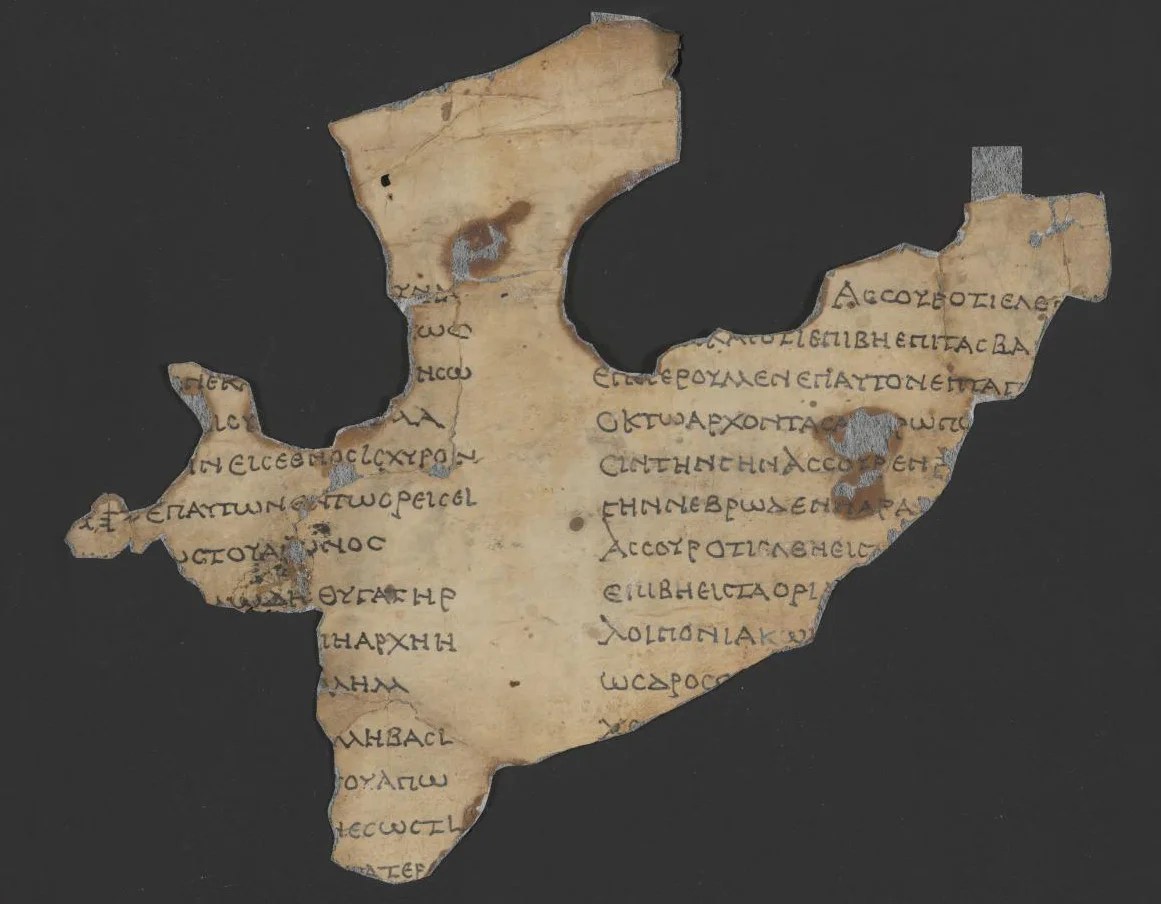 ΥΝΑ
ωϹ
ΝΕΚ ΗϹω
ΙϹΥ
ΙΝ ΕΙϹΕΘΝΟϹΙϹΧΥΡΟΝ
ΕΠΑΥΤωΝ ΕΝΤωΟΡΕΙϹΕΙ
ωϹΤΟΥΑΙωΝΟϹ
ΘΥΓΑΤΗΡ
ΗΑΡΧΗΗ
ΛΗΜ
ΜΗΒΑϹΙ
ΟΥΑΠω
ΕϹωϹΤΙ
ΑΤΕΡ
ΑϹϹΟΥΡΟΤΙΕΛΘ
ΜωΝΚΑΙΟΤΙΕΠΙΒΗΕΠΙΤΑϹΒΑ
ΕΠΕΓΕΡΟΥΜΕΝΕΠΑΥΤΟΝΕΠΤΑΠ
ΟΚΤωΑΡΧΟΝΤΑϹΑ ΡωΠω
ϹΙΝΤΗΝΓΗΝΑϹϹΟΥΡΕΝ
ΓΗΝΝΕΒΡωΔΕΝΠΑΡΑ
ΑϹϹΟΥΡΟΤΙΕΛΘΗΕΙϹΤ
ΕΠΙΒΗΕΙϹΤΑΟΡΙ
ΛΟΙΠΟΝΙΑΚω
ωϹΔΡΟϹΟ
ΧΟ